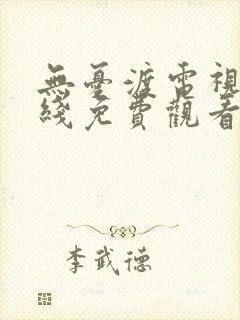 無憂渡電視
綫免費觀看
李武德